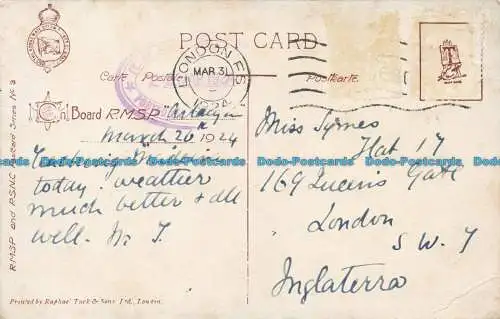 POST CARD
Carte Postale
Postkarte
LONDON F.S.
MAR 31
1924
On Board R.M.S.P. "Arlanza"
March 26th 1924
today. weather
much better & all
well.
Miss Symes
Flat 17
169 Queens Gate
London
S.W. 7
Inglaterra
R.M.S.P. and P.S.N.C. On Board Series No 3
Printed by Raphael Tuck & Sons Ltd., London.
Dodo-Postcards Dodo-Postcards Dodo-Postcards Dodo-Postcards Dodo-Postcards